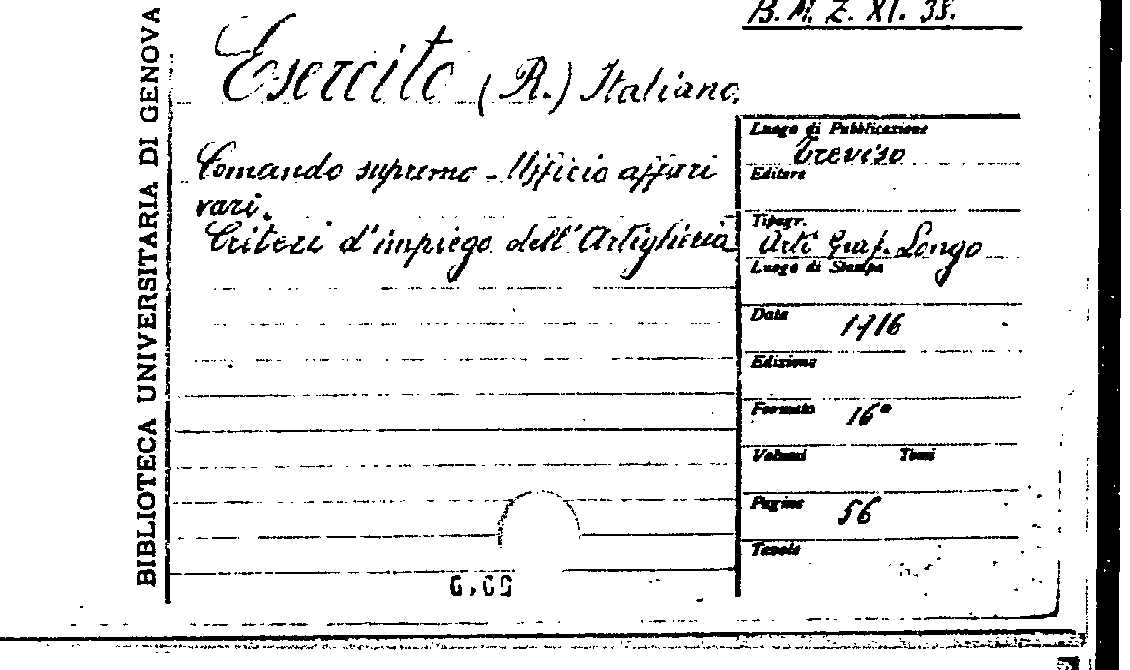 BIBLIOTECA UNIVERSITARIA DI GENOVA
B. M. Z. XI. 38.
Esercito (R.) Italiano.
Comando supremo - Ufficio affari
vari.
Criteri d'impiego dell'Artiglieria
Luogo di Pubblicazione
Treviso
Editore
Tipogr.
Arti Graf. Longo
Luogo di Stampa
Data 1916
Edizione
Formato 16°
Volumi Tomi
Pagine 56
Tavole